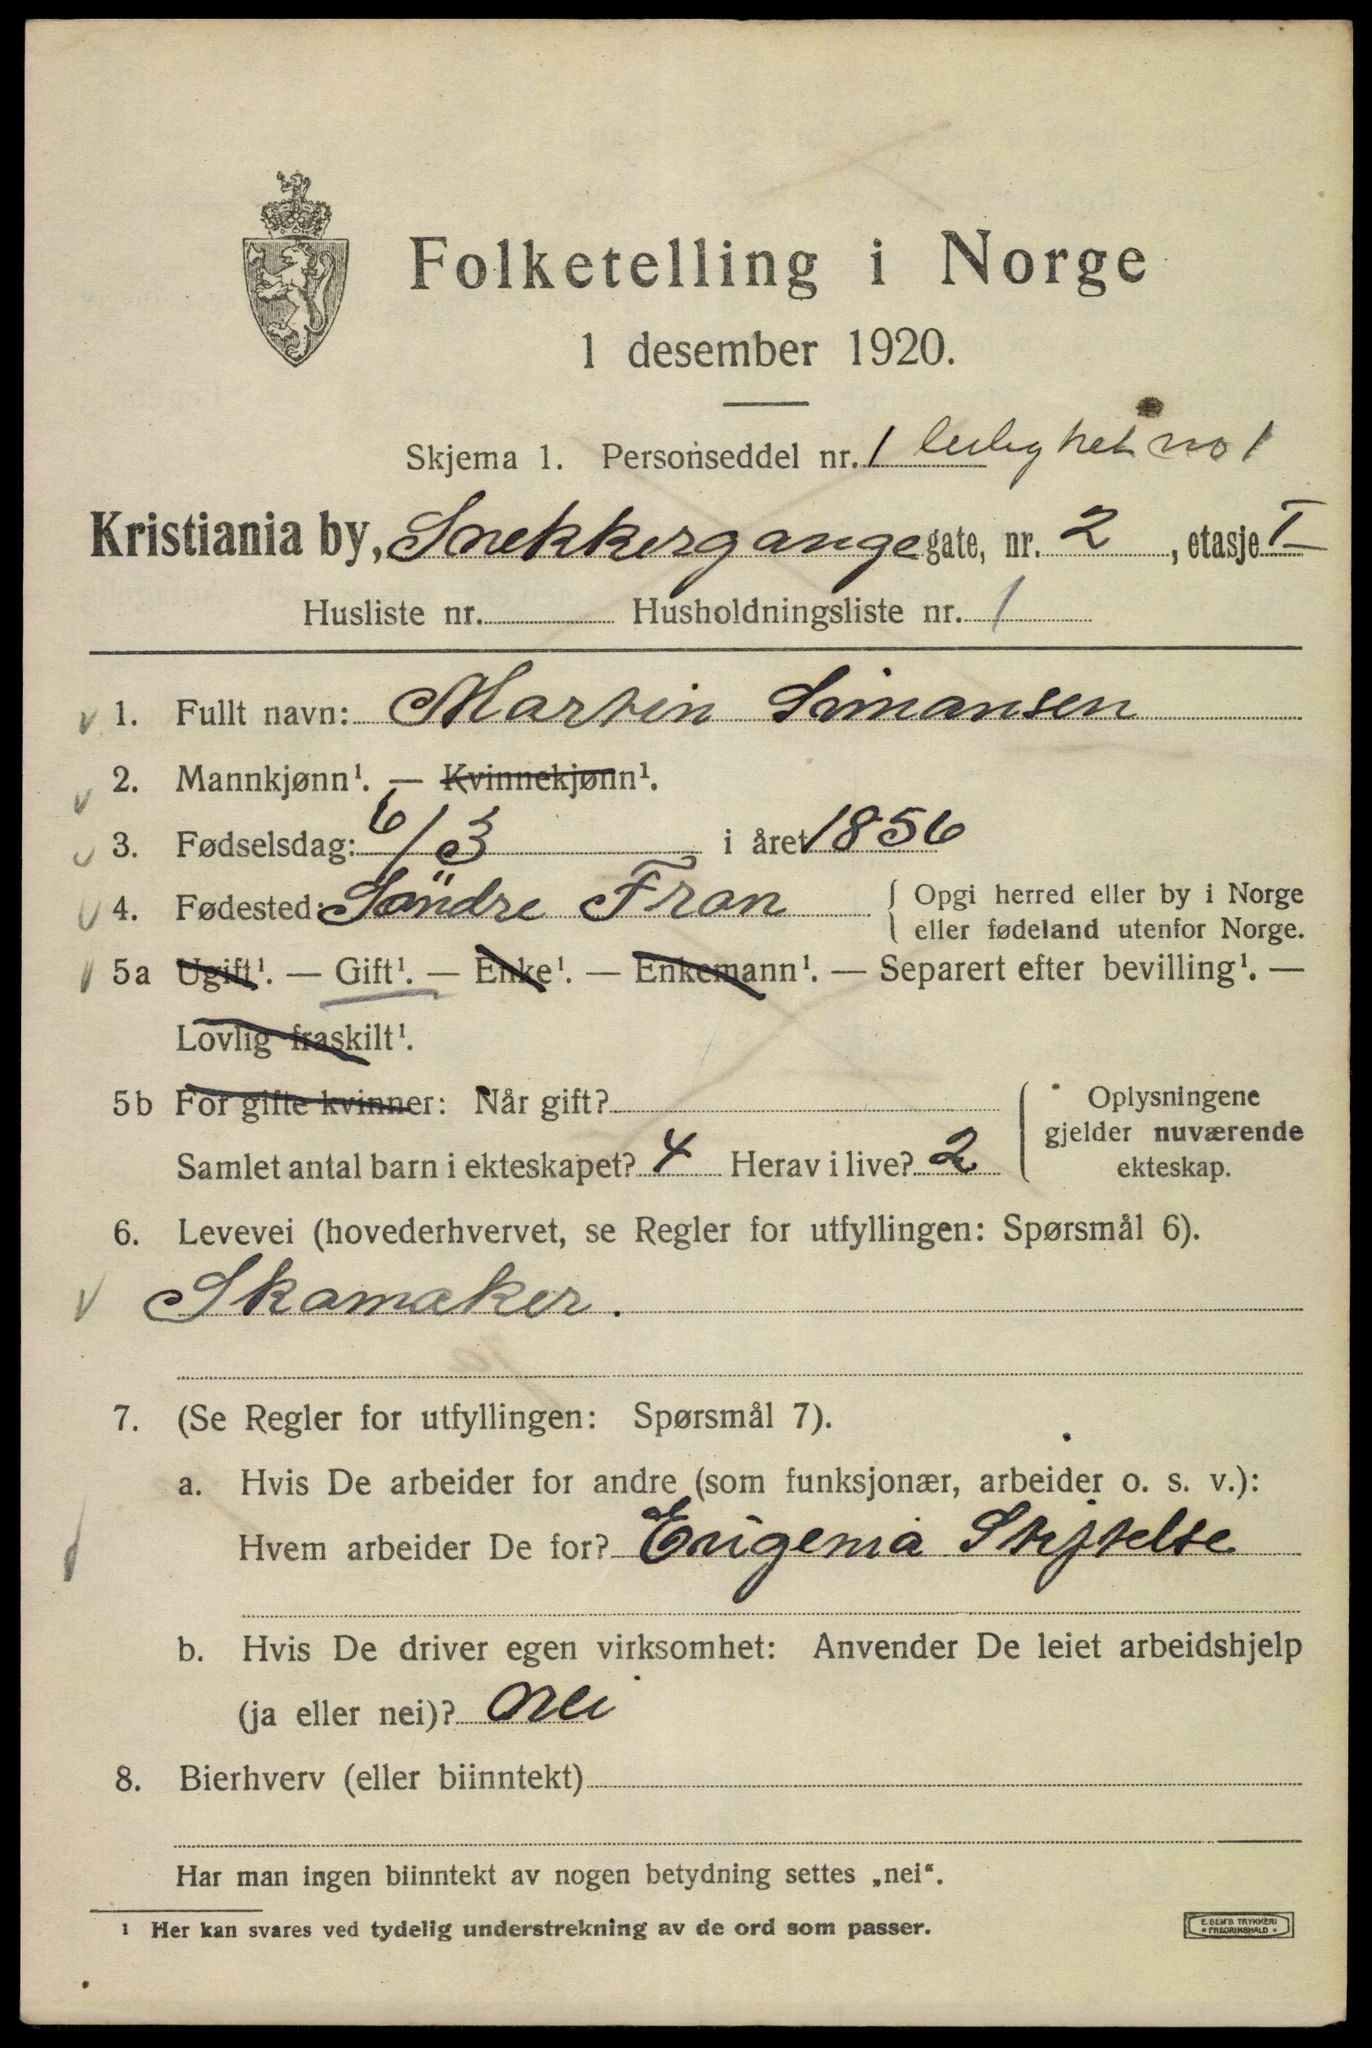 Folketelling i Norge
1 desember 1920.
Skjema 1. Personseddel nr. 1 leilighet no 1
Kristiania by, Snekkergange gate, nr. 2, etasje I
Husliste nr. Husholdningsliste nr. 1
1. Fullt navn: Martin Simansen
2. Mannkjønn¹. — Kvinnekjønn¹.
3. Fødselsdag: 6/3 i året 1856
4. Fødested: Söndre Fron { Opgi herred eller by i Norge
eller fødeland utenfor Norge.
5a Ugift¹. — Gift¹. — Enke¹. — Enkemann¹. — Separert efter bevilling¹. —
Lovlig fraskilt¹.
5b For gifte kvinner: Når gift?
Samlet antal barn i ekteskapet? 4 Herav i live? 2
Oplysningene
gjelder nuværende
ekteskap.
6. Levevei (hovederhvervet, se Regler for utfyllingen: Spørsmål 6).
Skomaker.
7. (Se Regler for utfyllingen: Spørsmål 7).
a. Hvis De arbeider for andre (som funksjonær, arbeider o. s. v.):
Hvem arbeider De for? Eugenia Stiftelse
b. Hvis De driver egen virksomhet: Anvender De leiet arbeidshjelp
(ja eller nei)? nei
8. Bierhverv (eller biinntekt)
Har man ingen biinntekt av nogen betydning settes „nei“.
¹ Her kan svares ved tydelig understrekning av de ord som passer.
E. SEM'S TRYKKERI
FREDRIKSHALD